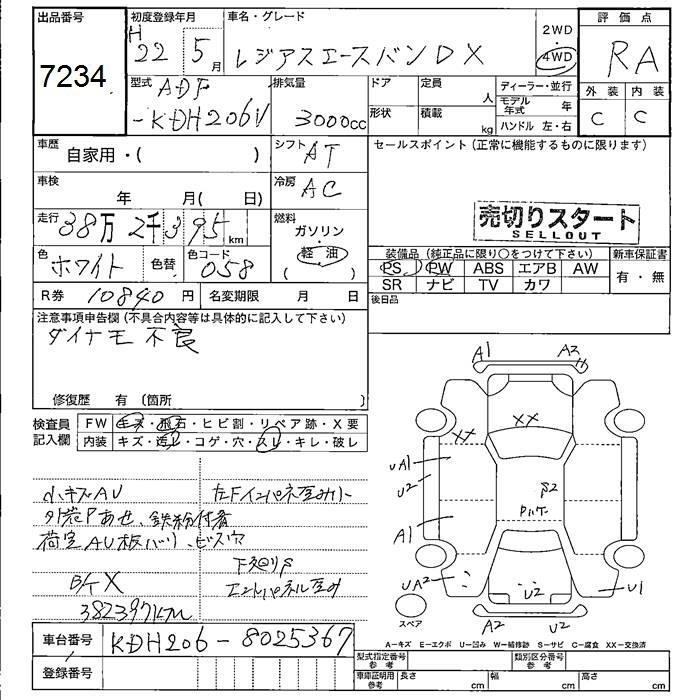 出品番号
7234
初度登録年月
H22 5月
車名・グレード
レジアスエースバンDX
2WD
4WD
評価点
RA
外装 内装
C C
型式 ADF
-KDH206V
排気量
3000cc
ドア
定員 人
形状
積載 kg
ディーラー・並行
モデル年式 年
ハンドル 左・右
車歴
自家用・( )
シフト AT
セールスポイント(正常に機能するものに限ります)
車検
年 月( 日)
冷房 AC
走行
38万2千395km
燃料
ガソリン
軽油
( )
売切りスタート
SELLOUT
色
ホワイト
色替
色コード
058
装備品(純正品に限り○をつけて下さい)
PS PW ABS エアB AW
SR ナビ TV カワ
新車保証書
有・無
R券 10840円
名変期限 月 日
後日品
注意事項申告欄(不具合内容等は具体的に記入して下さい)
ダイナモ不良
修復歴 有(箇所 )
検査員
記入欄
FW キズ・飛石・ヒビ割・リペア跡・X要
内装 キズ・汚れ・コゲ・穴・スレ・キレ・破レ
小キズAU
外装Pあせ、鉄粉付着
荷室AU板バリ、ビス穴
B/T X
382397KM
左Fインパネ歪み
下廻りP
エンドパネル歪み
A1 A2
XX
XX
UA1
U2
S2
A1
UA2
U2
U1
スペア
A2 U2
A-キズ E-エクボ U-凹み W-補修跡 S-サビ C-腐食 XX-交換済
車台番号
KDH206-8025367
登録番号
型式指定番号
参考
類別区分番号
参考
車庫証明用
参考
長さ cm
幅 cm
高さ cm